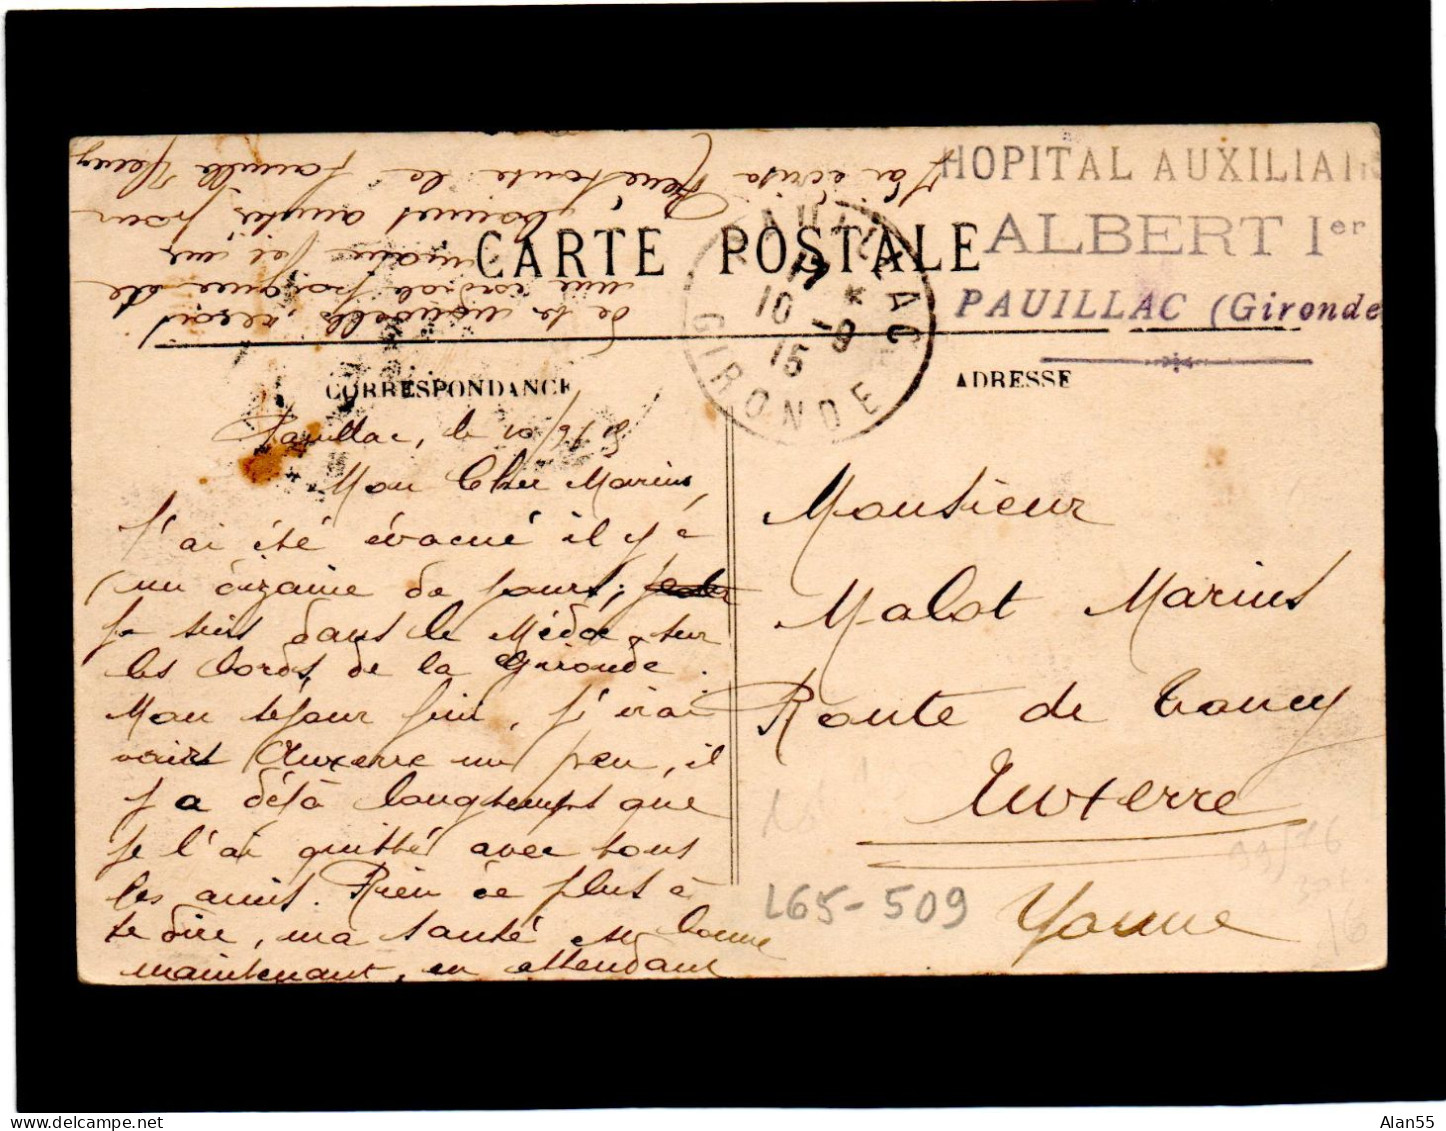 HOPITAL AUXILIAIR
ALBERT Ier
PAUILLAC (Gironde
CARTE POSTALE
PAUILLAC
17
10 - 9
15
*
GIRONDE
CORRESPONDANCE
ADRESSE
Pauillac, le 10/9/15
Mon Cher Marius
J'ai été évacué il y a
un dizaine de jours,
je suis dans le Médoc sur
les bords de la Gironde.
Mon séjour fini, j'irai
voir Auxerre un peu, il
y a déjà longtemps que
je l'ai quitté avec tous
les amis. Rien de plus à
te dire, ma santé est bonne
maintenant, en attendant
de te nouvelles, reçois
une cordiale poignée de
main
J'ai écris
toute la famille
Monsieur
Malot Marius
Route de Toucy
Auxerre
Yonne
L65-509
Alan55